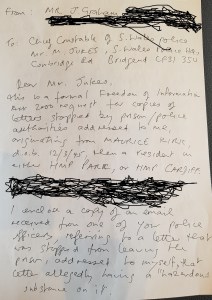 From: Mr J. Graham
To Chief Constable of S. Wales Police
Mr M. JUKES, S. Wales Police HQ,
Cowbridge Rd Bridgend CF31 3SU
Dear Mr. Jukes,
this is a formal Freedom of Information
Act 2000 request for copies of
letters stopped by prison/police
authorities addressed to me,
originating from MAURICE KIRK,
d.o.b. 12/3/45, then a resident in
either HMP PARC, or HMP CARDIFF.
I enclose a copy of an email
received from one of your police
officers referring to a letter that
was stopped from leaving the
prison, addressed to myself, that
letter allegedly having a "hazardous
substance on it.